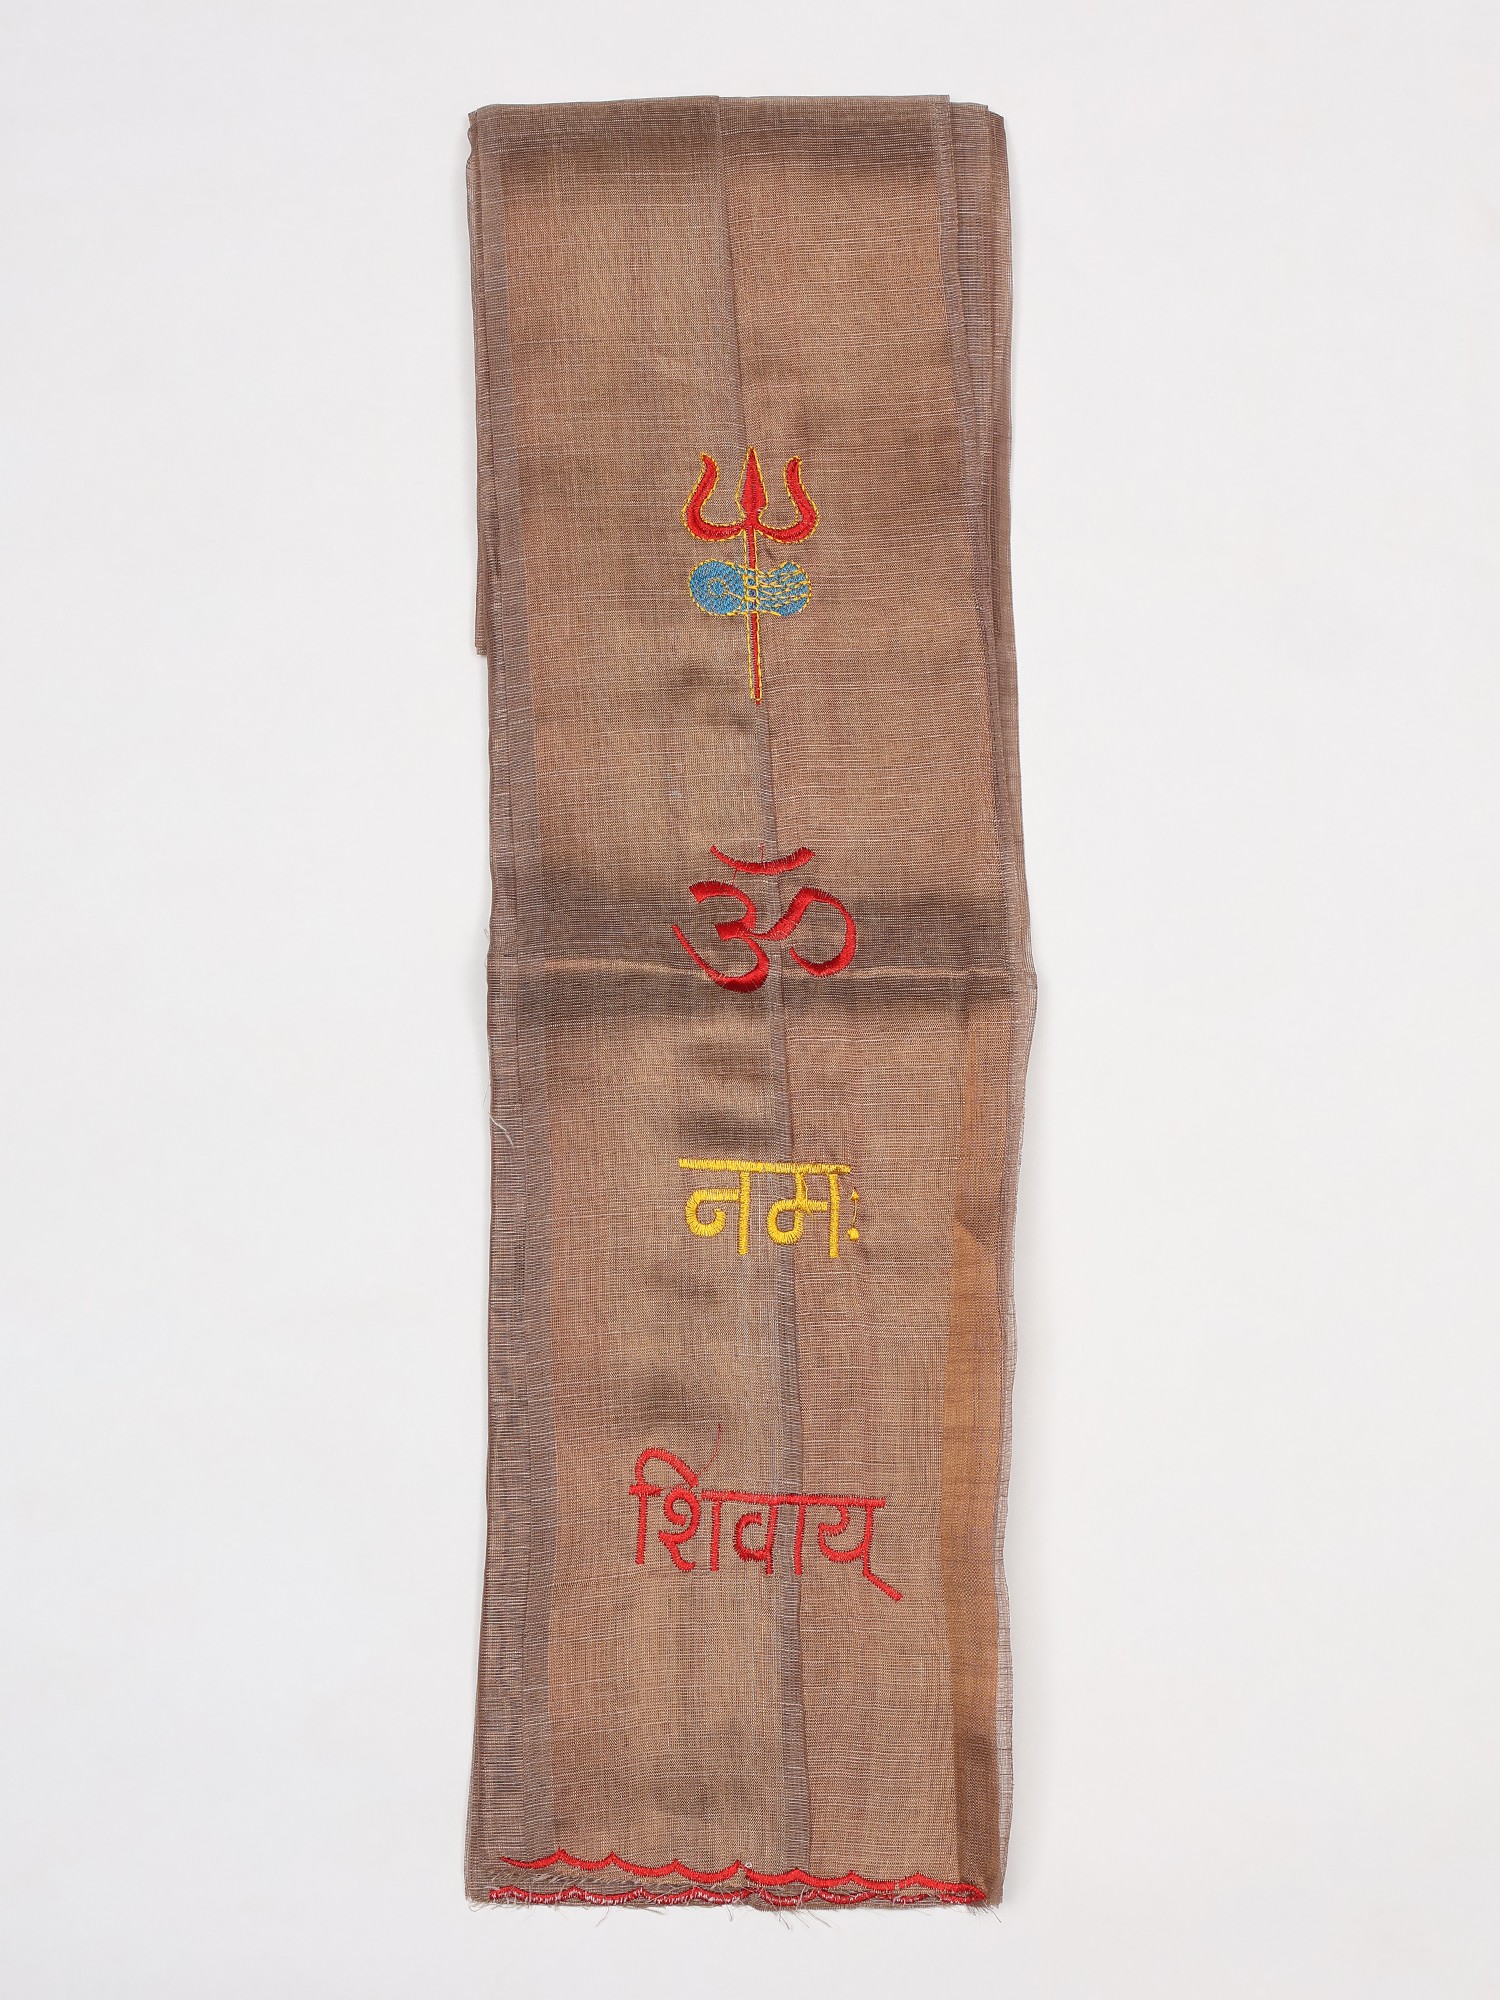 ॐ
नमः
शिवाय्